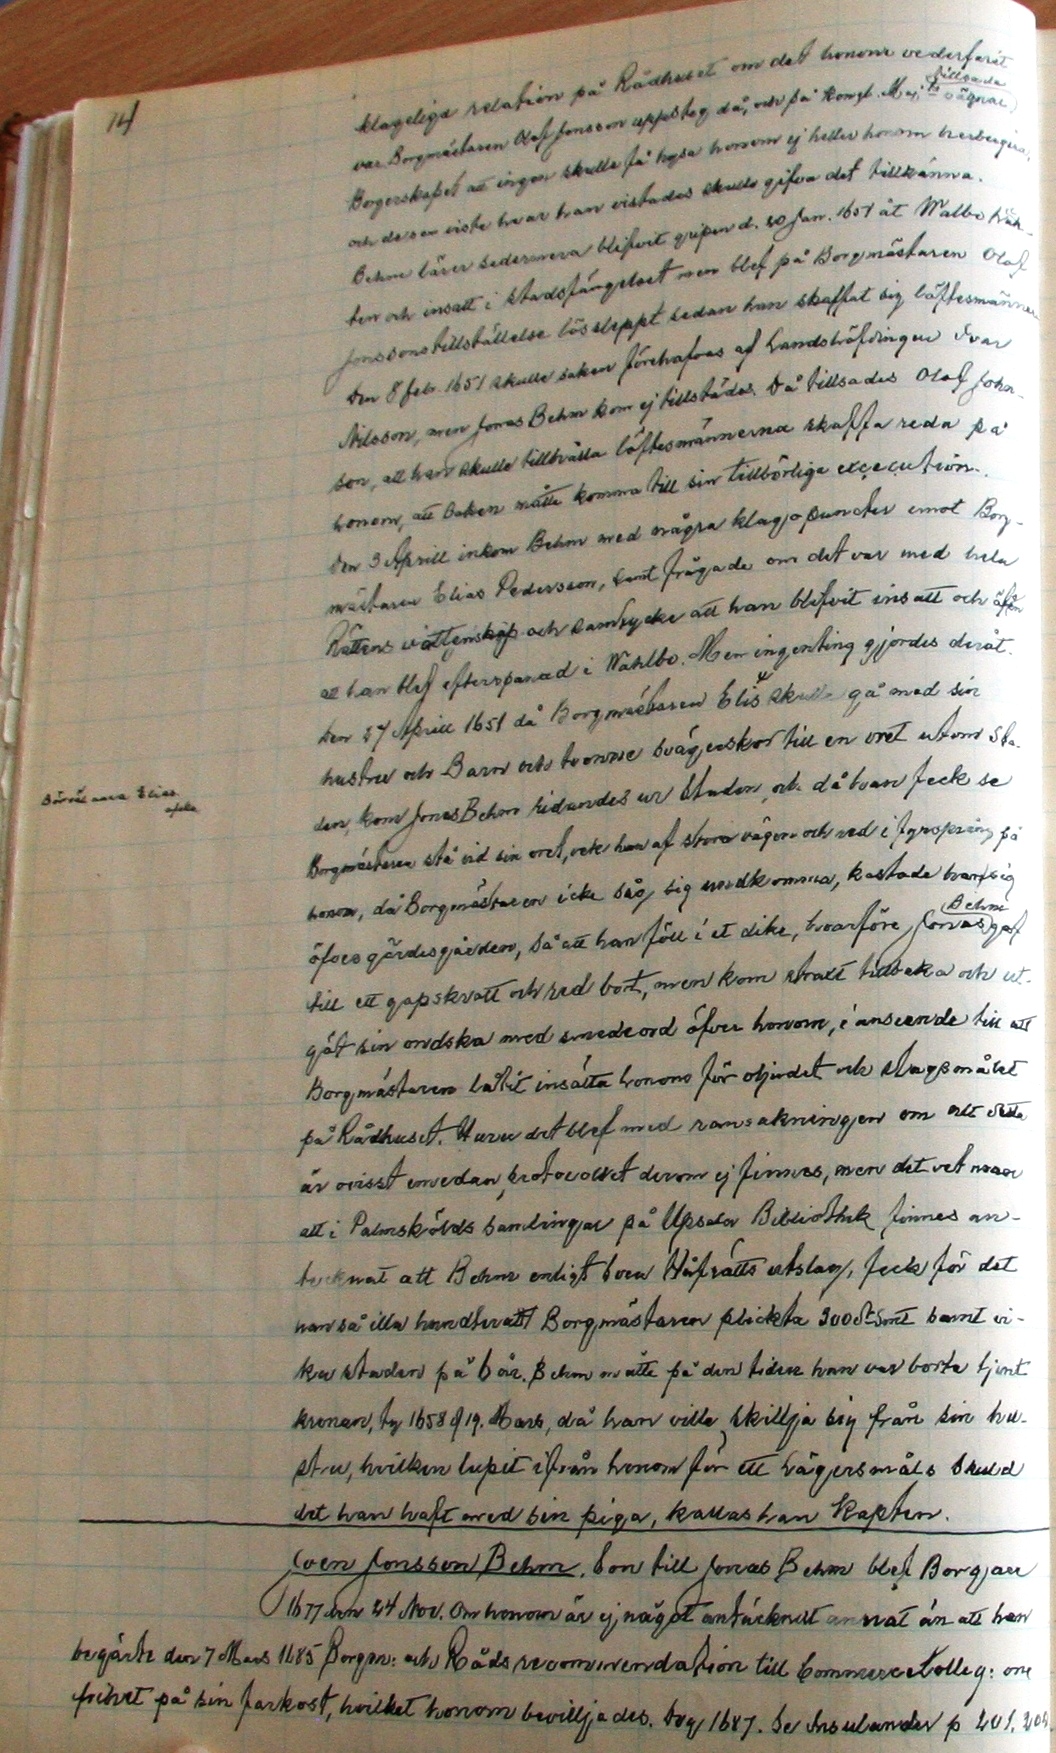 14
klageliga relation på Rådhuset om det honom vederfarit
var Borgmästaren Olof Jonsson uppsteg då, och på Kongl. Maj:ts vägnar tillsade
Borgerskapet att ingen skulle få hysa honom ej heller honom herbergera,
och de som viste hvar han vistades skulle gifva det tillkänna.
Behm lärer sedermera blifvit gripen d. 20 Jan. 1651 åt Walbo häk-
ten och insatt i stadsfängelset men blef på Borgmästaren Olof
Jonssons tillställelse lössläppt sedan han skaffat sig löftesmännen
Den 8 feb. 1651 skulle saken förehafvas af Landshöfdingen Ivar
Nilsson, men Jonas Behm kom ej tillstädes. Då tillsades Olof John-
son, att han skulle tillhålla löftesmännerna skaffa reda på
honom, att saken måtte komma till sin tillbörliga execution.
Den 3 Aprill inkom Behm med några klagopuncter emot Borg-
mästaren Elias Pedersson, samt frågade om det var med hela
Rättens vättenskap och samtycke att han blifvit insatt och äfven
att han blef efterspanad i Wahlbo. Men ingenting gjordes deråt.
Den 27 Aprill 1651 då Borgmästaren Elis skulle gå med sin
hustru och Barn och tvenne svägerskor till en vret utom Sta-
den, kom Jonas Behm ridandes ur Staden, och då han feck se
Borgmästaren stå vid sin vret, vek han af stora vägen och red i fyrsprång på
honom, då Borgmästaren icke såg sig undkomma, kastade han sig
öfver gärdesgården, så att han föll i et dike, hvarföre Jonas Behm gaf
till ett gapskratt och red bort, men kom straxt tillbaka och ut-
göt sin ondska med smädeord öfver honom, i anseende till att
Borgmästaren låtit insätta honom för oljudet och slagsmålet
på Rådhuset. Huru det blef med ransakningen om allt detta
är ovisst emedan protocollet derom ej finnes, men det vet man
att i Palmskölds samlingar på Upsala Bibliothek finnes an-
tecknat att Behm enligt Svea Håfrätts utslag, feck för det
han så illa handterat Borgmästaren plickta 300 d. Smt samt vi-
ka staden på 6 år. Behm måtte på den tiden han var borta tjent
kronan, ty 1658 d 19. Mars, då han ville skillja sig från sin hu-
stru, hvilken lupit ifrån honom för ett lägersmåls skuld
det han haft med sin piga, kallas han Kapten.
Joen Jonsson Behm. Son till Jonas Behm blef Borgare
1677 den 24 Nov. Om honom är ej något antäcknat annat än att han
begärte den 7 Mars 1685 Borgm: och Råds recommendation till Commerce Colleg: om
frihet på sin farkost, hvilket honom bevilljades. Dog 1687. Se Insulander p 201. 204.